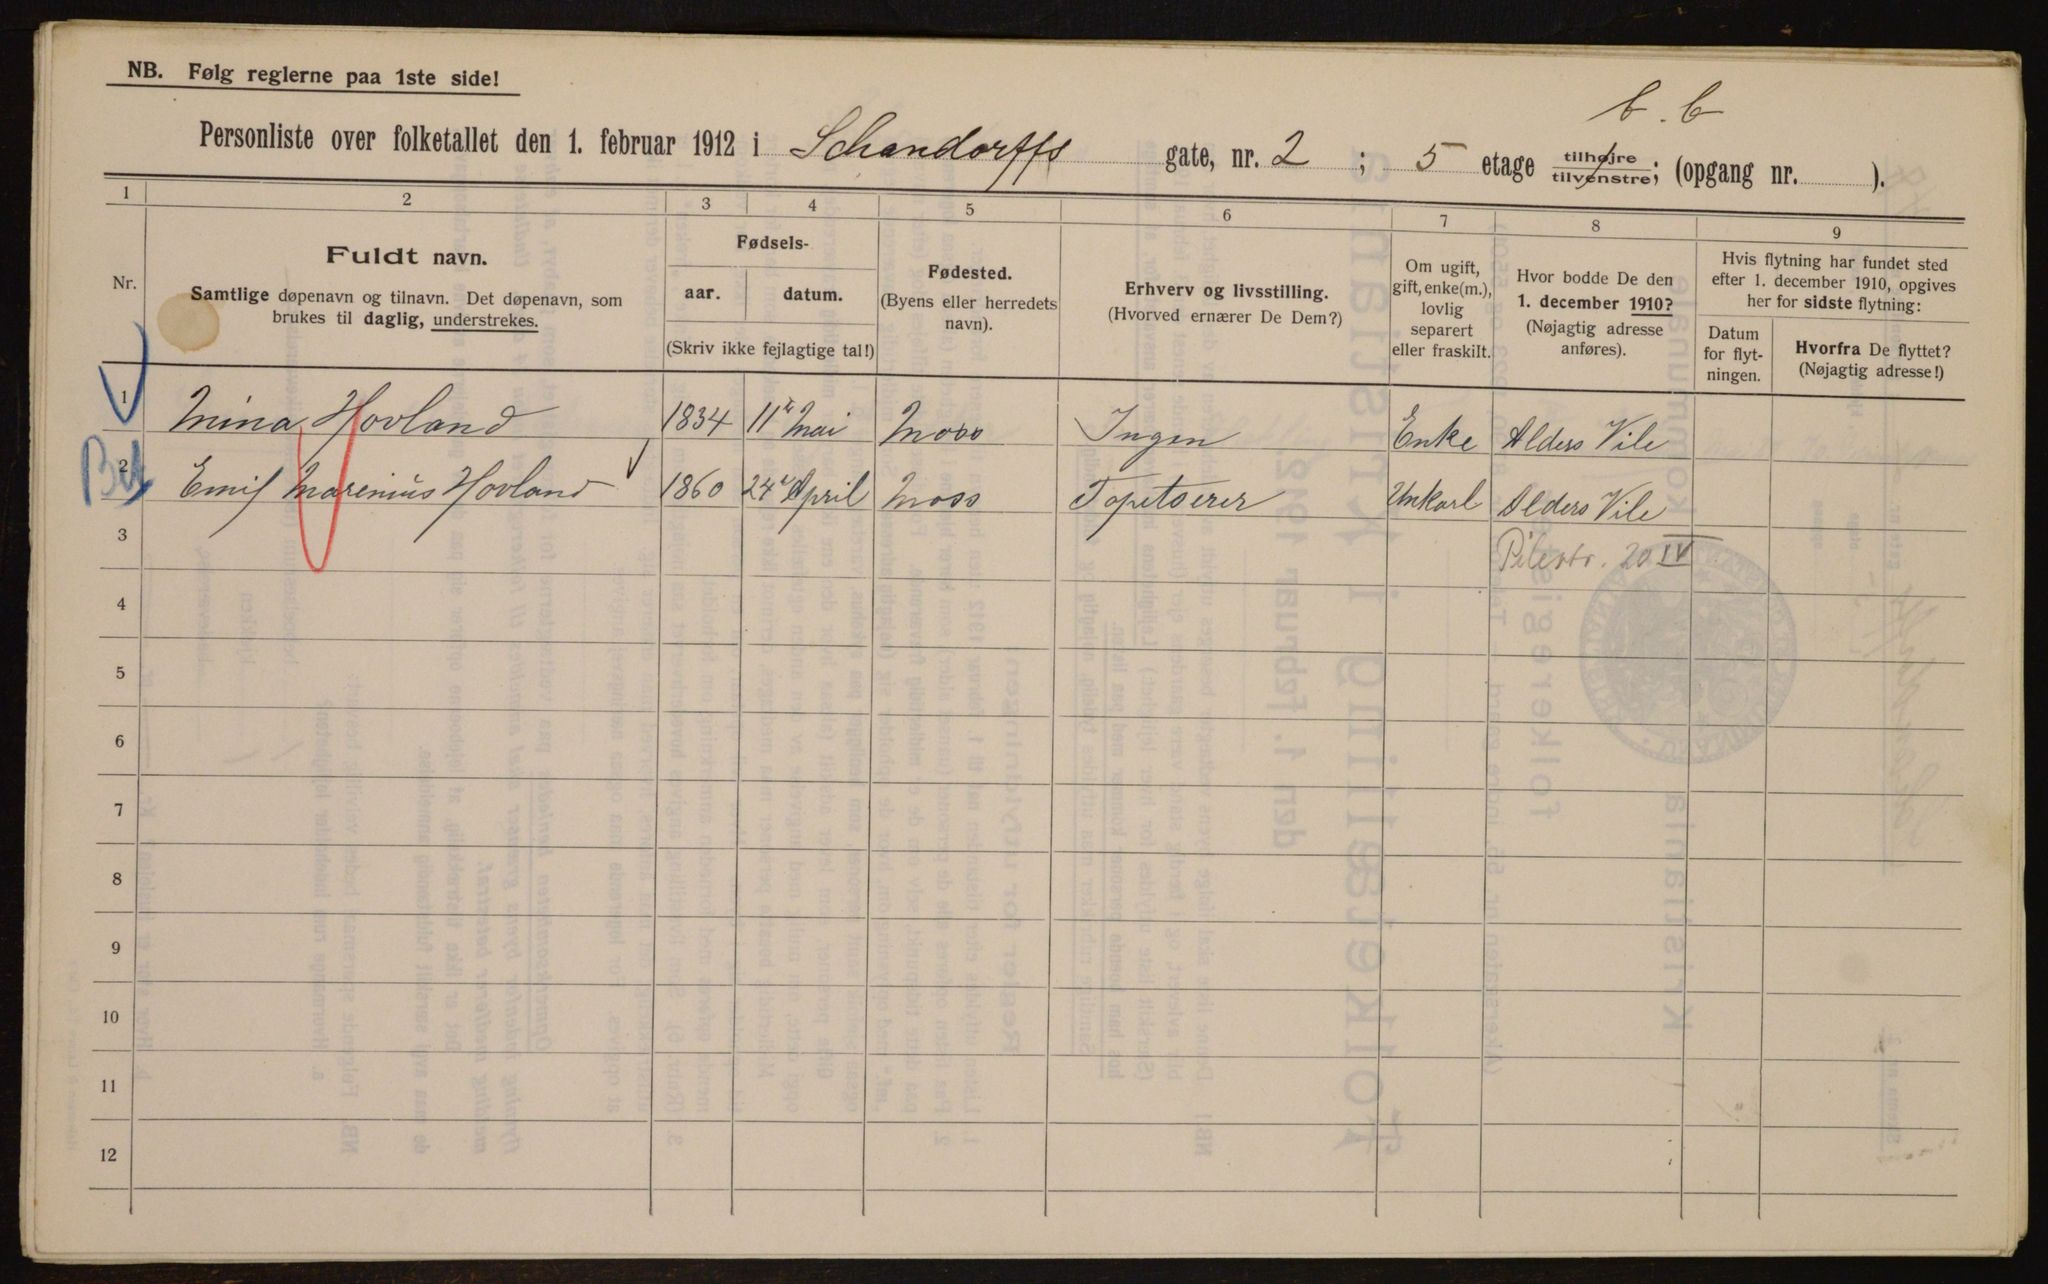 NB. Følg reglerne paa 1ste side!
b. b
Personliste over folketallet den 1. februar 1912 i Schandorffs gate, nr. 2 ; 5 etage tilhøjre/tilvenstre; (opgang nr. ).
1 2 3 4 5 6 7 8 9
Nr.
Fuldt navn.
Samtlige døpenavn og tilnavn. Det døpenavn, som
brukes til daglig, understrekes.
Fødsels-
aar. datum.
(Skriv ikke fejlagtige tal!)
Fødested.
(Byens eller herredets
navn).
Erhverv og livsstilling.
(Hvorved ernærer De Dem?)
Om ugift,
gift, enke(m.),
lovlig
separert
eller fraskilt.
Hvor bodde De den
1. december 1910?
(Nøjagtig adresse
anføres).
Hvis flytning har fundet sted
efter 1. december 1910, opgives
her for sidste flytning:
Datum
for flyt-
ningen.
Hvorfra De flyttet?
(Nøjagtig adresse!)
1 Mina Hovland 1834 11 Mai Moss Ingen Enke Alders Vile
2 Emil Marenius Hovland 1860 24 April Moss Tapetserer Unkarl Alders Vile
3 Pilestr. 20 IV
4
5
6
7
8
9
10
11
12